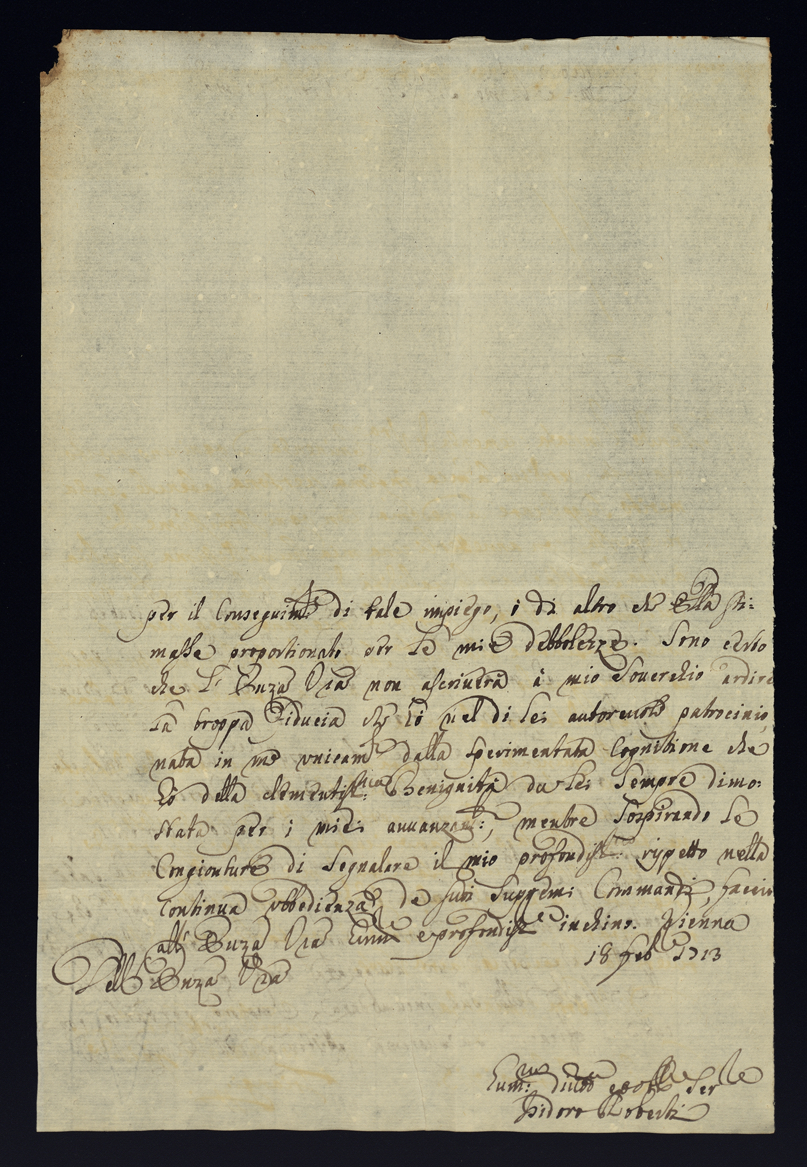 per il Conseguim:to di tale impiego, ò di altro che Ella sti:
masse proportionato per le mie debbolezze. Sono certo
che l'Ecc.za V.ra non ascriuerà à mio Souerchio ardire
la troppa Fiducia che hò nel di lei autoreuole patrocinio,
nata in me vnicam.te dalla sperimentata Cognitione che
hò della clementiss:ma Benignità da lei sempre dimo:
strata per i miei auuanzam:ti, mentre sospirando le
Congionture di segnalare il mio profondiss:mo rispetto nella
continua vbbedienza de suoi supremi Commandi, faccio
all' Ecc.za V.ra hum.mo e profondiss.mo inchino. Vienna
18 feb 1713
Dell' Ecc.za V.ra
Hum:mo
Isidoro Roberti